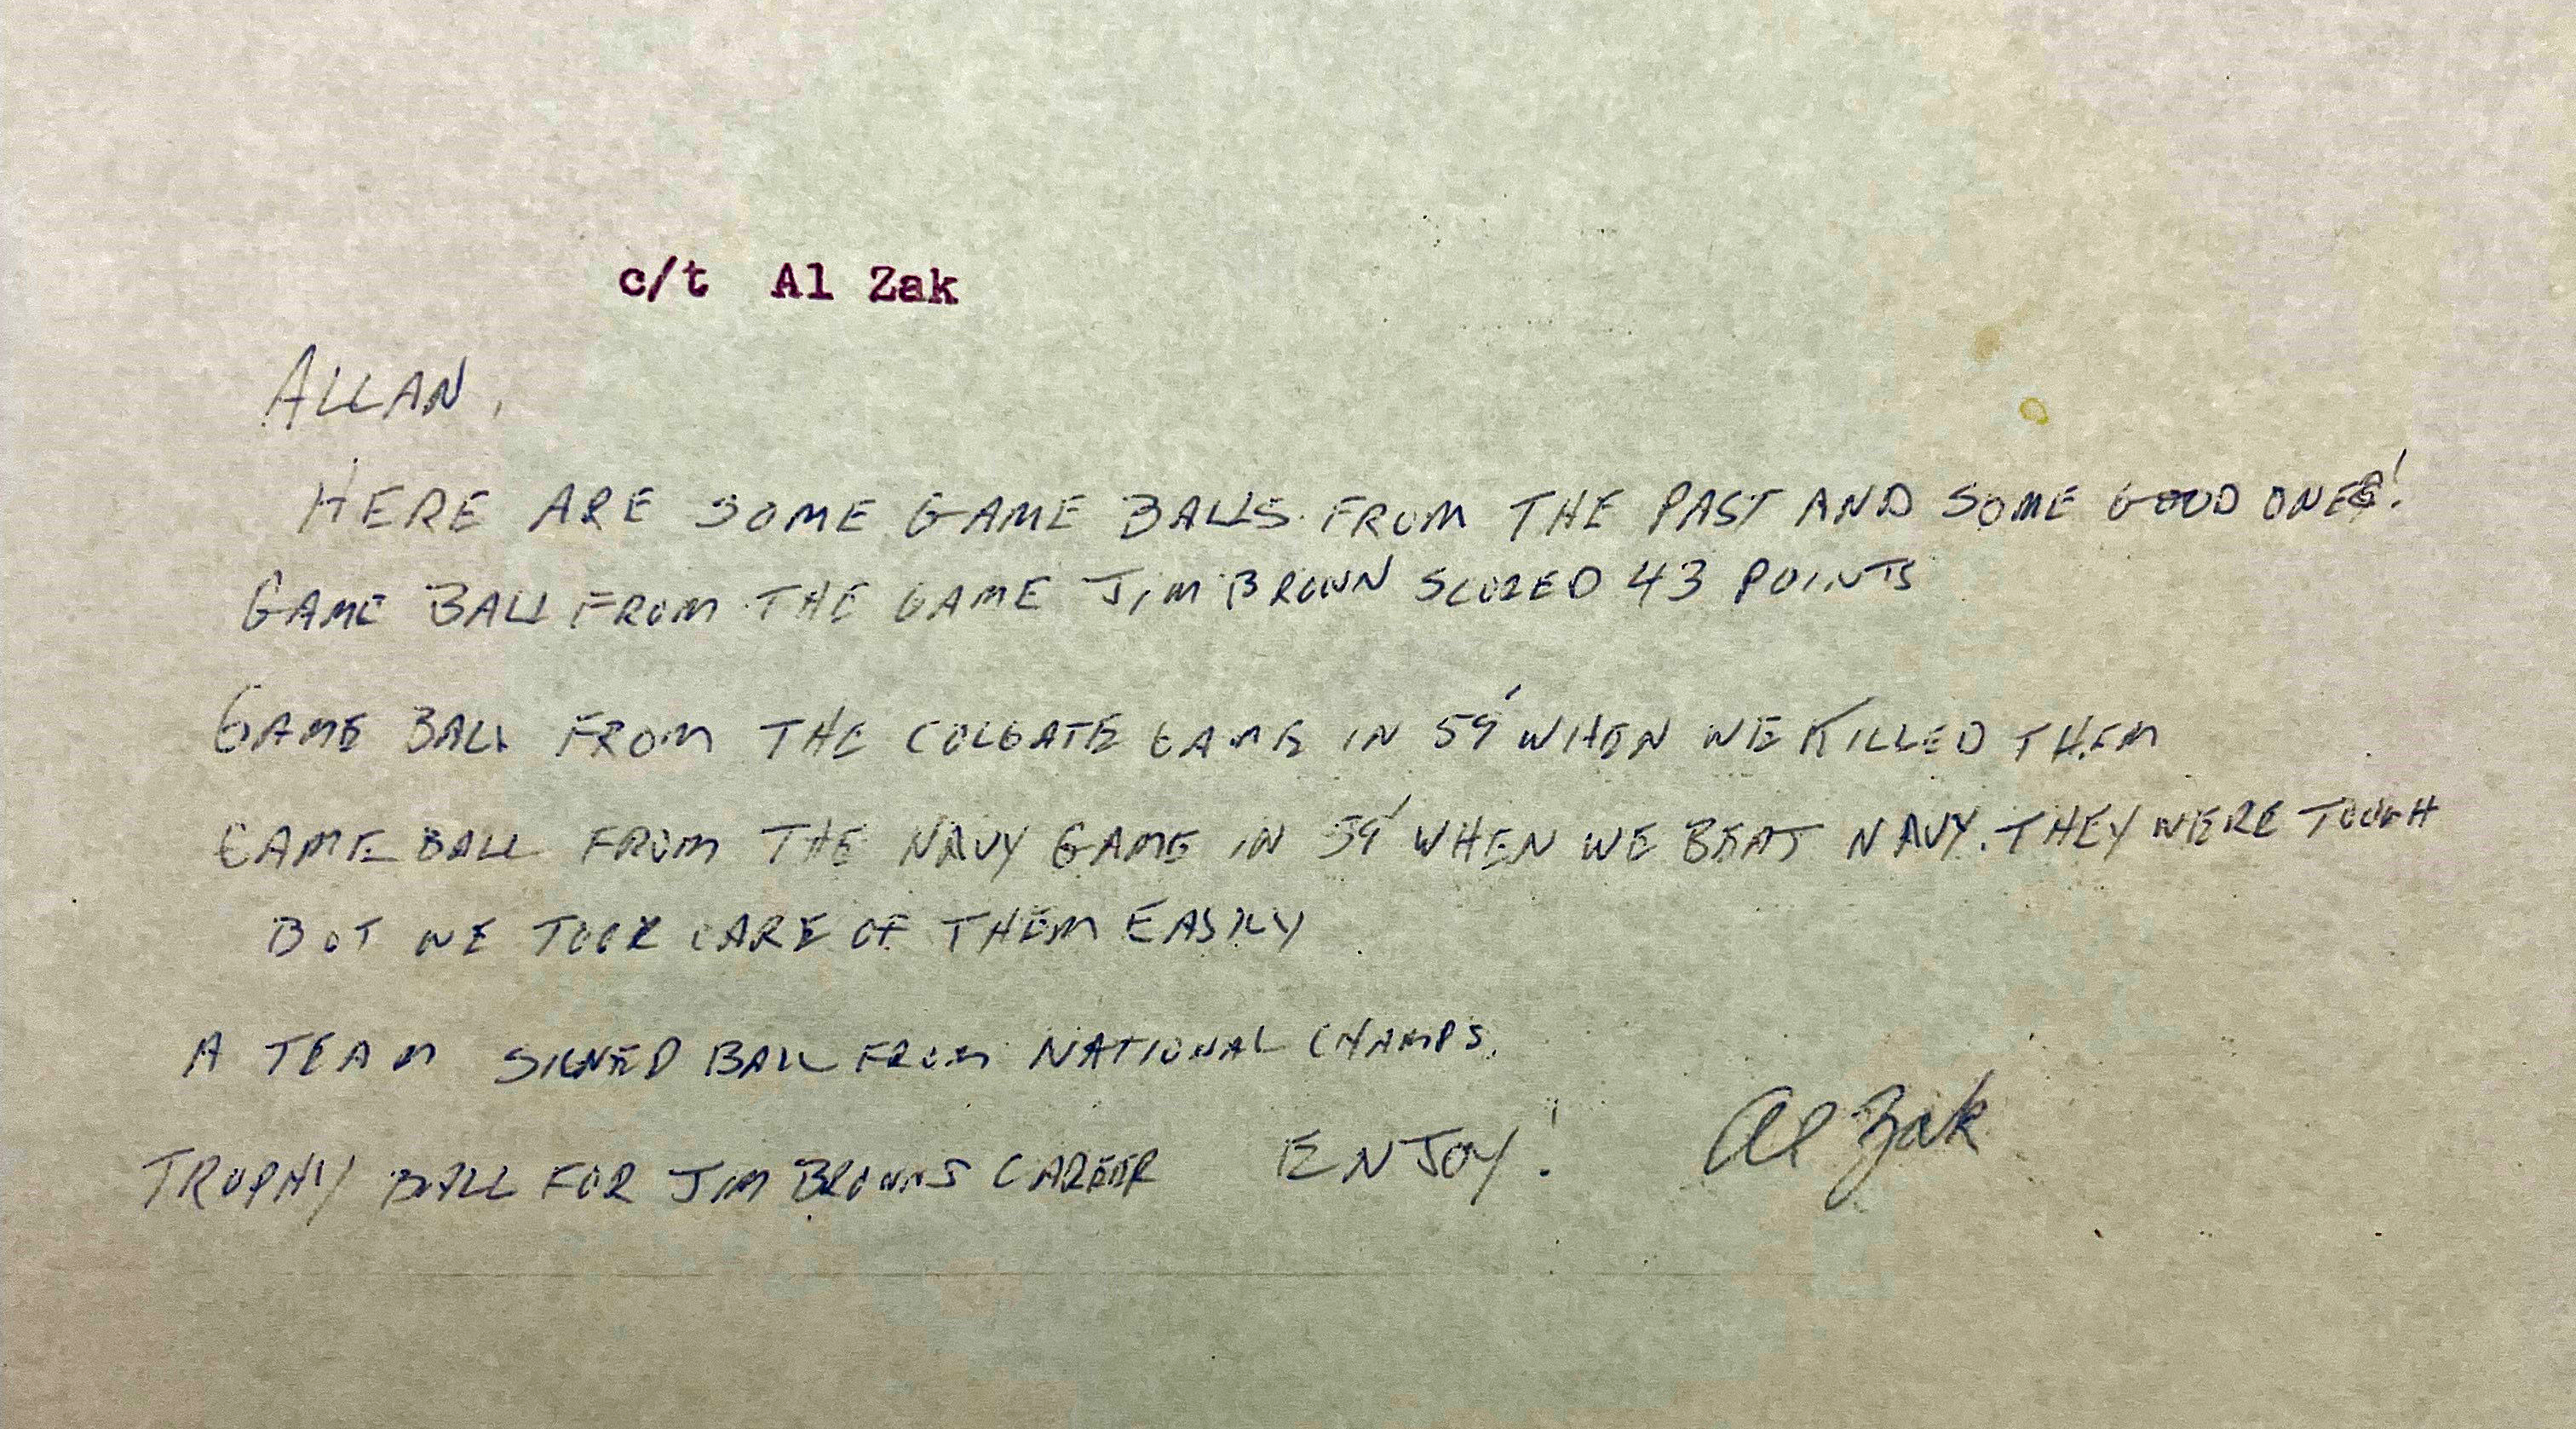 c/t Al Zak
ALLAN,
HERE ARE SOME GAME BALLS FROM THE PAST AND SOME GOOD ONES!
GAME BALL FROM THE GAME JIM BROWN SCORED 43 POINTS
GAME BALL FROM THE COLGATE GAME IN 59' WHEN WE KILLED THEM
GAME BALL FROM THE NAVY GAME IN 59' WHEN WE BEAT NAVY. THEY WERE TOUGH
BUT WE TOOK CARE OF THEM EASILY
A TEAM SIGNED BALL FROM NATIONAL CHAMPS.
TROPHY BALL FOR JIM BROWNS CAREER ENJOY! Al Zak